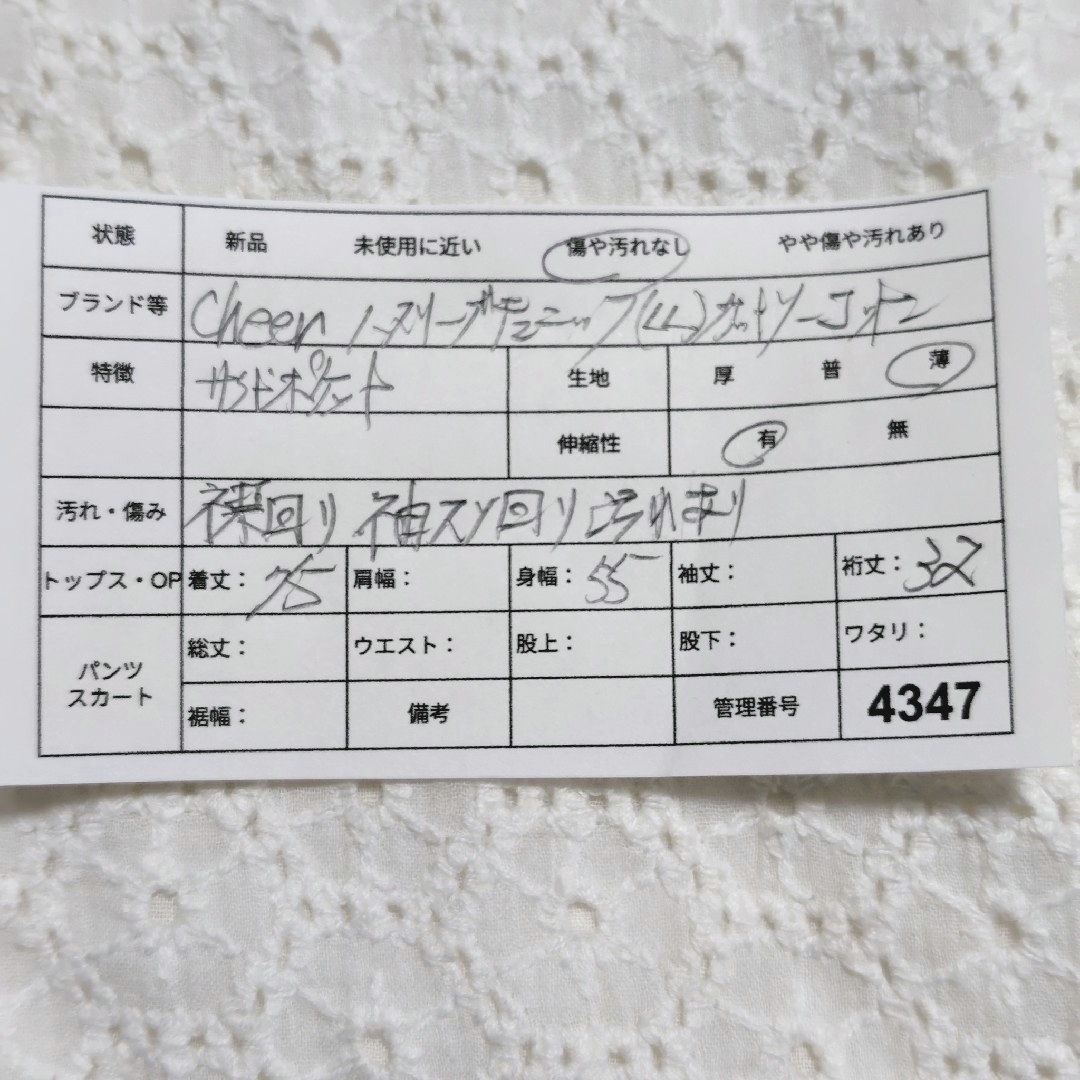 状態 新品 未使用に近い 傷や汚れなし やや傷や汚れあり
ブランド等 cheer ノースリーブチュニック(LL)カットソーコットン
特徴 サイドポケット 生地 厚 普 薄
伸縮性 有 無
汚れ・傷み 襟回り 袖スソ回り 汚れあり
トップス・OP 着丈: 75 肩幅: 身幅: 55 袖丈: 裄丈: 32
パンツ 総丈: ウエスト: 股上: 股下: ワタリ:
スカート 裾幅: 備考 管理番号 4347